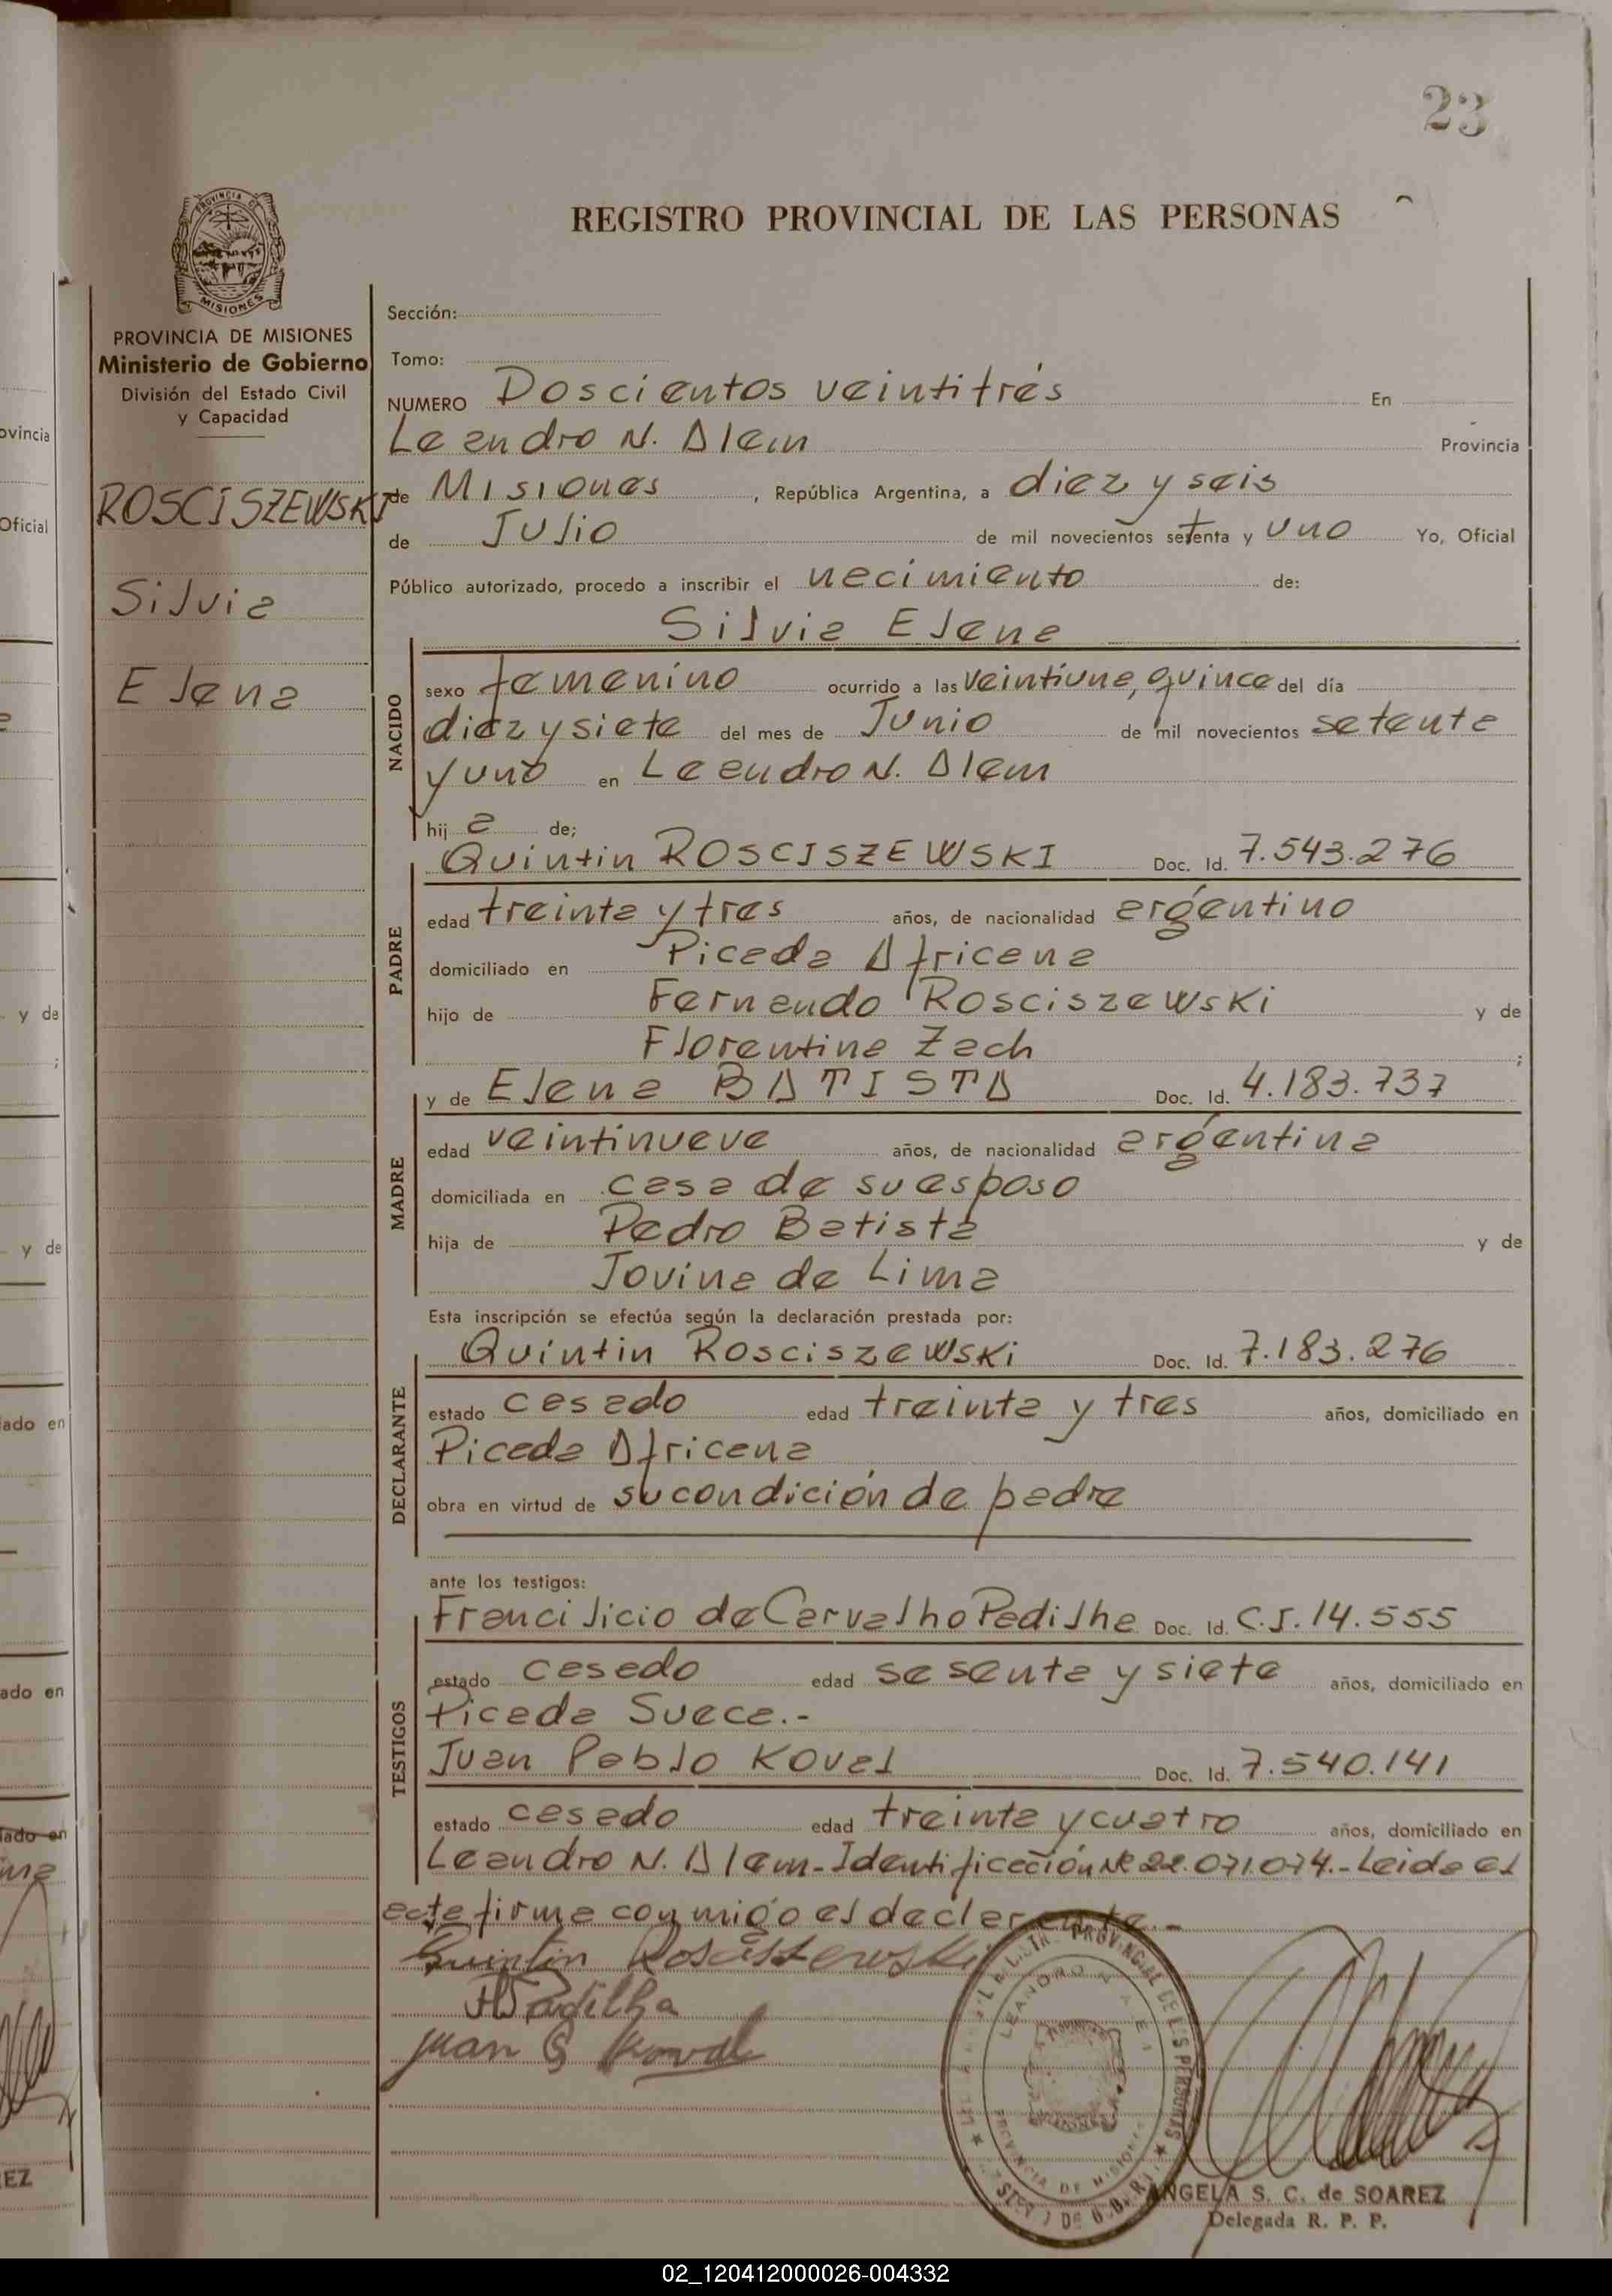 23
PROVINCIA DE
MISIONES
PROVINCIA DE MISIONES
Ministerio de Gobierno
División del Estado Civil
y Capacidad
ROSCISZEWSKI
Silvia
Elena
REGISTRO PROVINCIAL DE LAS PERSONAS
Sección:
Tomo:
NUMERO Doscientos veintitrés En
Leandro N. Alem Provincia
de Misiones, República Argentina, a diez y seis
de Julio de mil novecientos setenta y uno Yo, Oficial
Público autorizado, procedo a inscribir el nacimiento de:
Silvia Elena
NACIDO
sexo femenino ocurrido a las veintiuna, quince del día
diez y siete del mes de Junio de mil novecientos setenta
y uno en Leandro N. Alem
hij a de;
Quintin ROSCISZEWSKI Doc. Id. 7.543.276
PADRE
edad treinta y tres años, de nacionalidad argentino
domiciliado en Picada Africana
hijo de Fernando Rosciszewski y de
Florentina Zach ;
y de Elena BATISTA Doc. Id. 4.183.737
MADRE
edad veintinueve años, de nacionalidad argentina
domiciliada en casa de su esposo
hija de Pedro Batista y de
Jovina de Lima
Esta inscripción se efectúa según la declaración prestada por:
Quintin Rosciszewski Doc. Id. 7.183.276
DECLARANTE
estado casado edad treinta y tres años, domiciliado en
Picada Africana
obra en virtud de su condición de padre
ante los testigos:
Francilicio de Carvalho Padilha Doc. Id. C.I. 14.555
TESTIGOS
estado casado edad sesenta y siete años, domiciliado en
Picada Sueca.-
Juan Pablo Koval Doc. Id. 7.540.141
estado casado edad treinta y cuatro años, domiciliado en
Leandro N. Alem-Identificación Nº 22.071.074.-Leida el
acta firma conmigo el declarante.-
Quintin Rosciszewski
Padilha
Juan P Koval
PROVINCIAL DE LAS PERSONAS
LEANDRO N. ALEM
PROVINCIA DE MISIONES
ANGELA S. C. de SOAREZ
Delegada R. P. P.
ovincia
Oficial
y de
;
y de
ado en
ado en
EZ
02_120412000026-004332